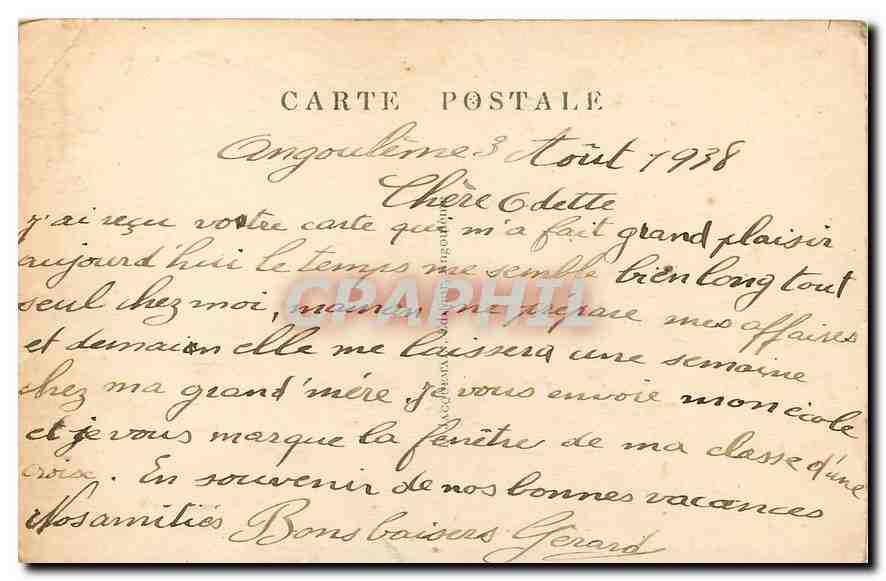 CARTE POSTALE
Angoulême 3 Août 1938
Chère Odette
J'ai reçu votre carte qui m'a fait grand plaisir
aujourd'hui le temps me semble bien long tout
seul chez moi, maman me prépare mes affaires
et demain elle me laissera une semaine
chez ma grand'mère. Je vous envoie mon école
et je vous marque la fenêtre de ma classe d'une
croix. En souvenir de nos bonnes vacances
Nos amitiés Bons baisers Gerard
CPAPHIL